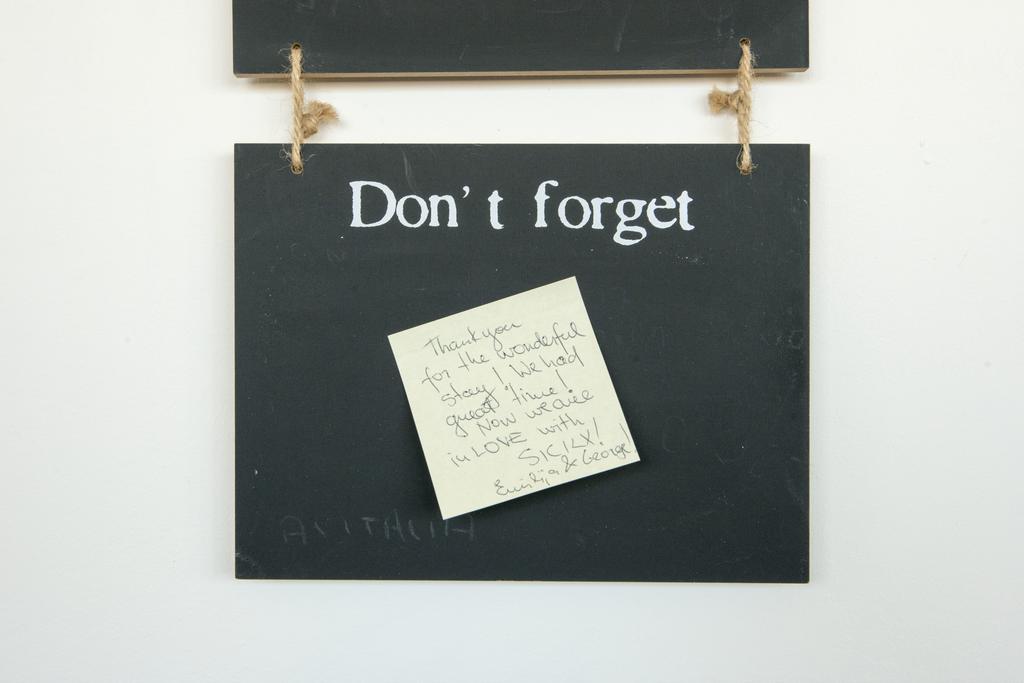 Don't forget
Thank you
for the wonderful
stay! We had
great time!
Now we are
in LOVE with
SICILY!
Emilija & George!